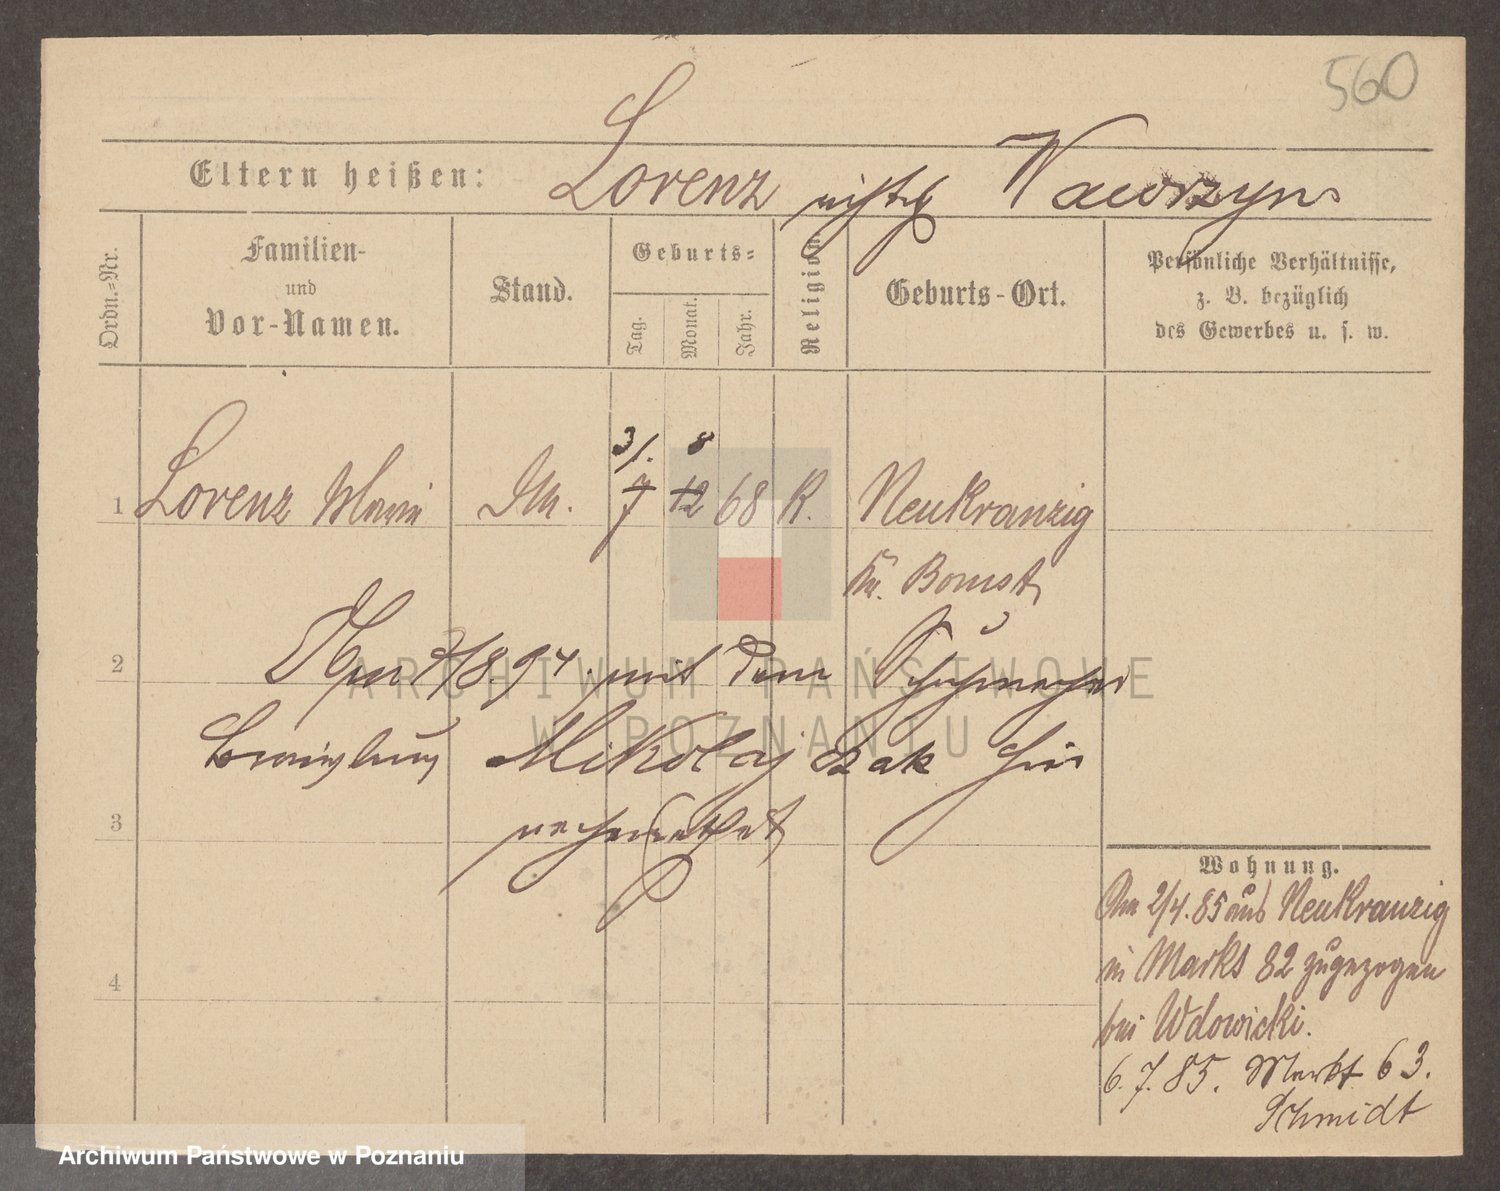 560
Eltern heißen: Lorenz richtig Wawrzyn
Ordn.-Nr.
Familien- und Vor-Namen.
Stand.
Geburts-
Tag.
Monat.
Jahr.
Religion
Geburts-Ort.
Persönliche Verhältnisse, z. B. bezüglich des Gewerbes u. s. w.
3/. 8
1 Lorenz Maria Dm. 7 12 68 K. Neukranzig
Kr. Bomst
2 7/8.94 mit dem Schuhmacher
Mikolajczak hier
3 verheirathet
4
Wohnung.
Am 2/4.85 aus Neukranzig
in Markt 82 zugezogen
bei Wdowicki.
6.7.85. Markt 63.
Schmidt
ARCHIWUM PAŃSTWOWE
W POZNANIU
Archiwum Państwowe w Poznaniu